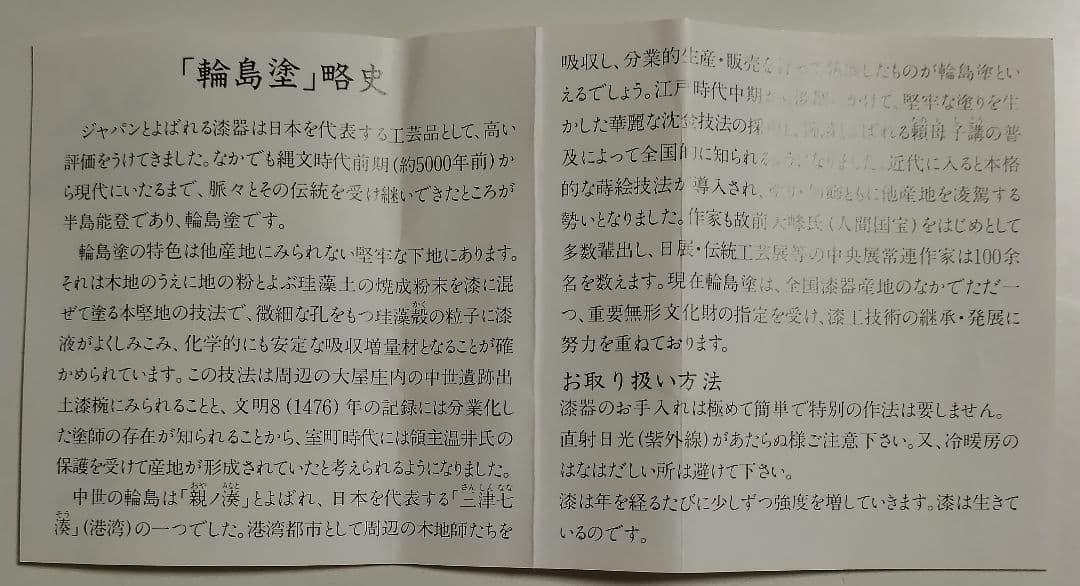 「輪島塗」略史
ジャパンとよばれる漆器は日本を代表する工芸品として、高い
評価をうけてきました。なかでも縄文時代前期(約5000年前)か
ら現代にいたるまで、脈々とその伝統を受け継いできたところが
半島能登であり、輪島塗です。
輪島塗の特色は他産地にみられない堅牢な下地にあります。
それは木地のうえに地の粉とよぶ珪藻土の焼成粉末を漆に混
ぜて塗る本堅地の技法で、微細な孔をもつ珪藻殻の粒子に漆
液がよくしみこみ、化学的にも安定な吸収増量材となることが確
かめられています。この技法は周辺の大屋庄内の中世遺跡出
土漆椀にみられることと、文明8(1476)年の記録には分業化し
た塗師の存在が知られることから、室町時代には領主温井氏の
保護を受けて産地が形成されていたと考えられるようになりました。
中世の輪島は「親ノ湊」とよばれ、日本を代表する「三津七
湊」(港湾)の一つでした。港湾都市として周辺の木地師たちを
吸収し、分業的生産・販売を したものが輪島塗とい
えるでしょう。江戸時代中期 かけて、堅牢な塗りを生
かした華麗な沈金技法の採用 ばれる頼母子講の普
及によって全国的に知られるようになりました。近代に入ると本格
的な蒔絵技法が導入され、 ともに他産地を凌駕する
勢いとなりました。作家も故前大峰氏(人間国宝)をはじめとして
多数輩出し、日展・伝統工芸展等の中央展常連作家は100余
名を数えます。現在輪島塗は、全国漆器産地のなかでただ一
つ、重要無形文化財の指定を受け、漆工技術の継承・発展に
努力を重ねております。
お取り扱い方法
漆器のお手入れは極めて簡単で特別の作法は要しません。
直射日光(紫外線)があたらぬ様ご注意下さい。又、冷暖房の
はなはだしい所は避けて下さい。
漆は年を経るたびに少しずつ強度を増していきます。漆は生きて
いるのです。